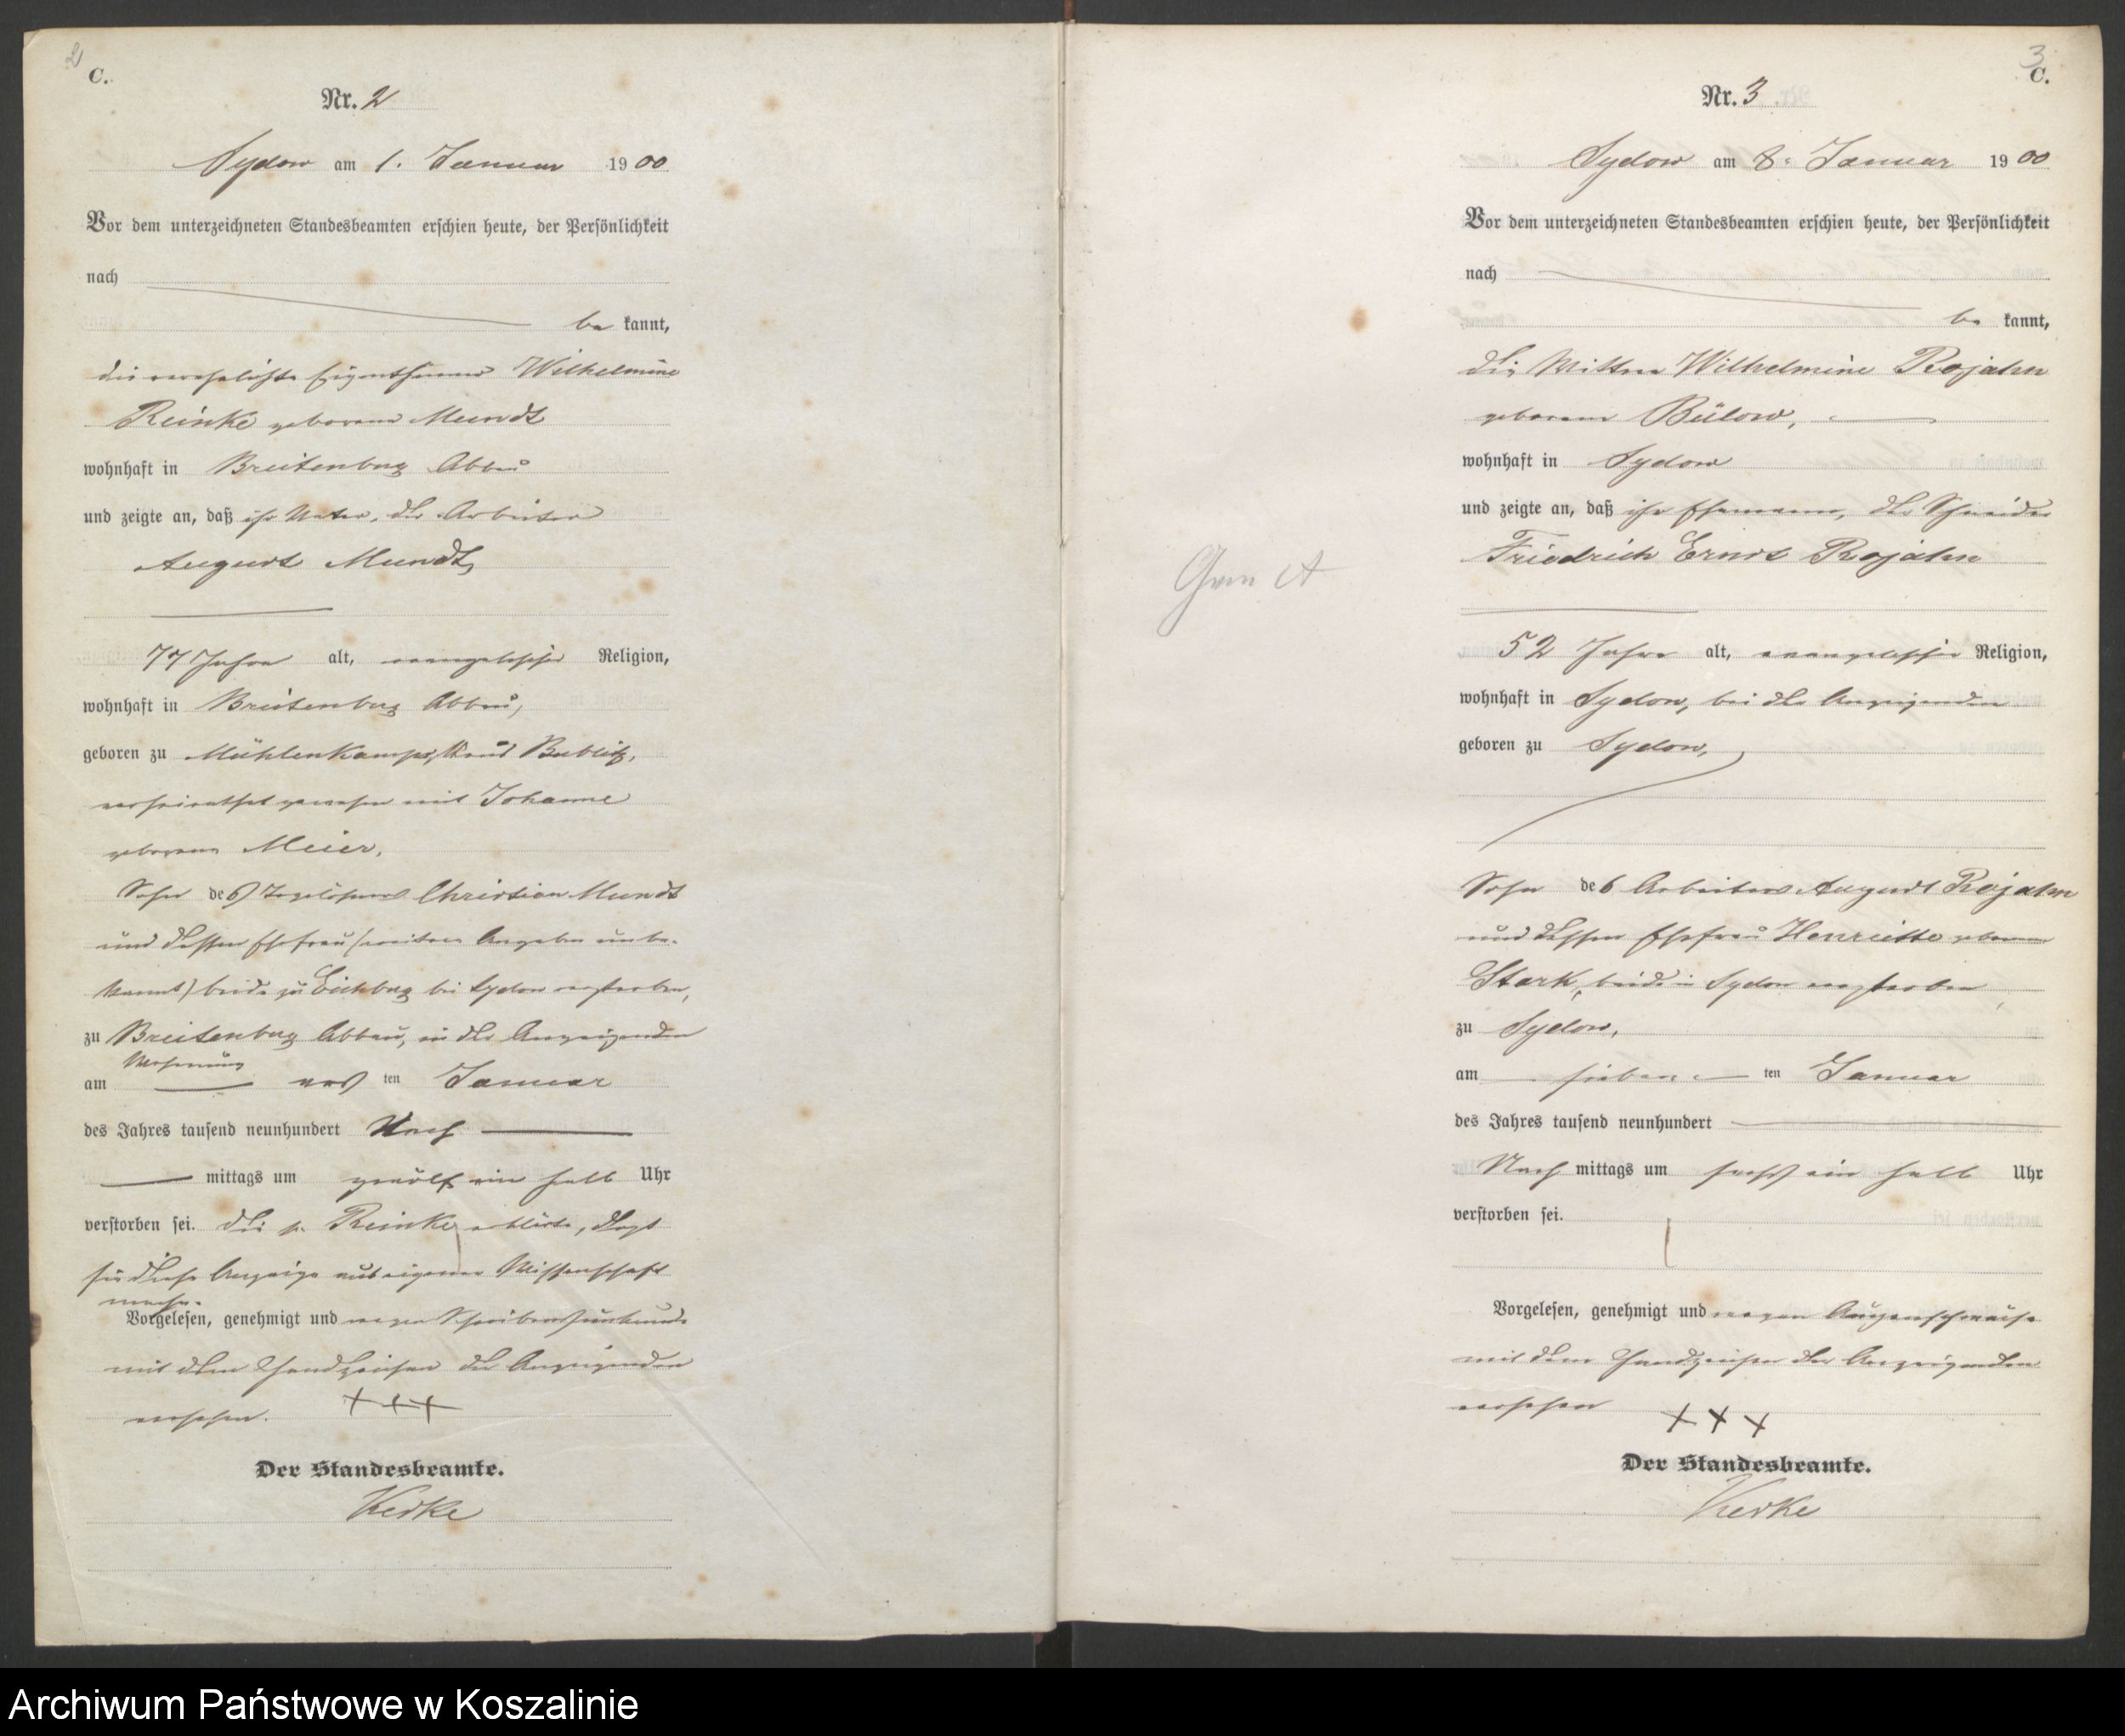 2
C.
Nr. 2
Sydow am 1. Januar 1900
Vor dem unterzeichneten Standesbeamten erschien heute, der Persönlichkeit
nach
be kannt,
die verehelichte Eigenthümer Wilhelmine
Reinke geborene Mundt
wohnhaft in Breitenberg Abbau
und zeigte an, daß ihr Vater, der Arbeiter
August Mundt,
77 Jahre alt, evangelischer Religion,
wohnhaft in Breitenberg Abbau,
geboren zu Mühlenkamp, Kreis Bublitz,
verheirathet gewesen mit Johanne
geborene Meier,
Sohn des Tagelöhners Christian Mundt
und dessen Ehefrau (weitere Angaben unbe-
kannt) beide zu Eichberg bei Sydow verstorben,
zu Breitenberg Abbau, in der Anzeigenden
Wohnung
am ers ten Januar
des Jahres tausend neunhundert Nach
mittags um zwölf ein halb Uhr
verstorben sei. Die p. Reinke erklärte, daß
sie diese Anzeige aus eigener Wissenschaft
mache.
Vorgelesen, genehmigt und wegen Schreibensunkunde
mit dem Handzeichen der Anzeigenden
versehen. +++
Der Standesbeamte.
Kedke
3
C.
Nr. 3
Sydow am 8. Januar 1900
Vor dem unterzeichneten Standesbeamten erschien heute, der Persönlichkeit
nach
be kannt,
die Wittwe Wilhelmine Rojahn
geborene Bülow,
wohnhaft in Sydow
und zeigte an, daß ihr Ehemann, der Schneider
Friedrich Ernst Rojahn
52 Jahre alt, evangelischer Religion,
wohnhaft in Sydow, bei der Anzeigenden
geboren zu Sydow,
Sohn des Arbeiters August Rojahn
und dessen Ehefrau Henriette geborene
Stark, beide in Sydow verstorben,
zu Sydow,
am sieben ten Januar
des Jahres tausend neunhundert
Nach mittags um sechs ein halb Uhr
verstorben sei.
Vorgelesen, genehmigt und wegen Augenschwäche
mit dem Handzeichen der Anzeigenden
versehen + + +
Der Standesbeamte.
Kedke
Archiwum Państwowe w Koszalinie